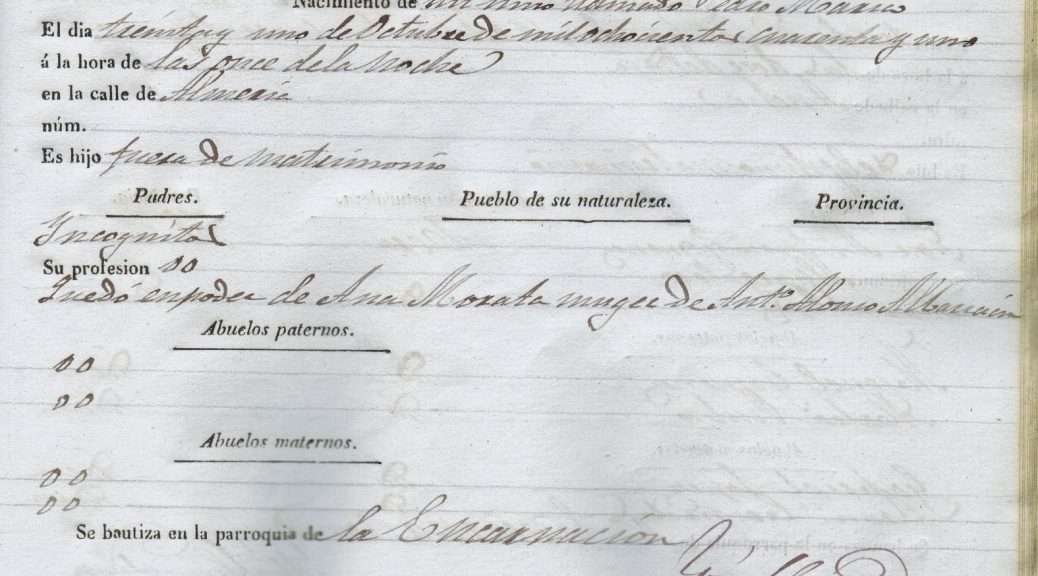 Nacimiento de un niño llamado Pedro Maria
El dia treinta y uno de Octubre de mil ochocientos cuarenta y uno
á la hora de las once de la noche
en la calle de Almeria
núm.
Es hijo fuera de matrimonio
Padres. Pueblo de su naturaleza. Provincia.
Incognitos
Su profesion 00
Quedó en poder de Ana Morata muger de Ant.º Alonso Albarracin
Abuelos paternos.
00
00
Abuelos maternos.
00
00
Se bautiza en la parroquia de la Encarnación